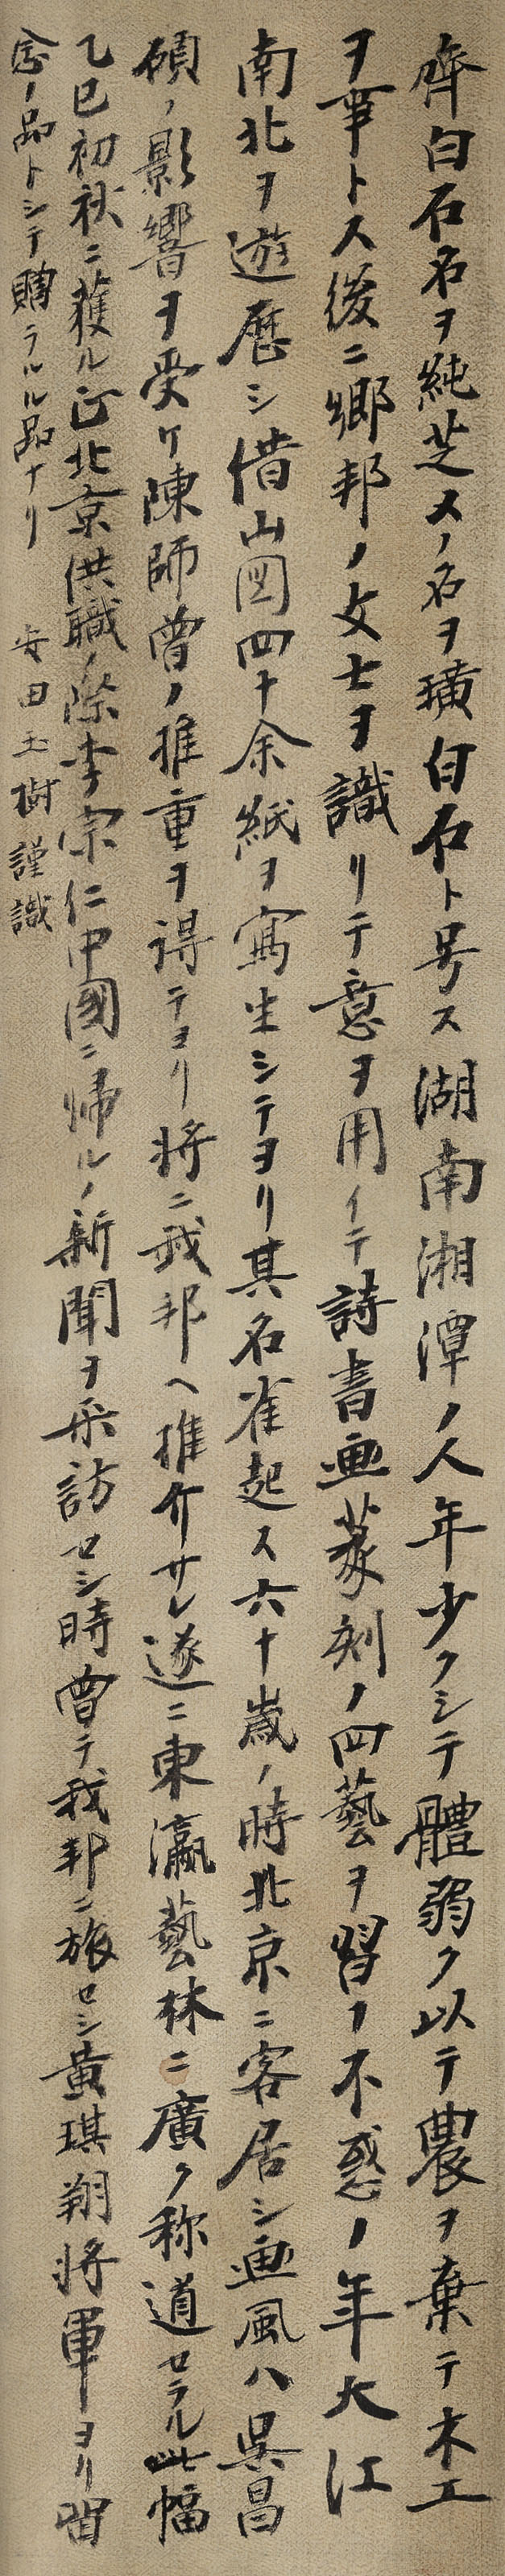 齊白石名ヲ純芝又ノ名ヲ璜白石ト号ス湖南湘潭ノ人年少クシテ體弱ク以テ農ヲ棄テ木工
ヲ事トス後ニ郷邦ノ文士ヲ識リテ意ヲ用イテ詩書画篆刻ノ四藝ヲ習フ不惑ノ年大江
南北ヲ遊歴シ借山図四十余紙ヲ寫生シテヨリ其名雀起ス六十歳ノ時北京ニ客居シ画風ハ呉昌
碩ノ影響ヲ受ケ陳師曾ノ推重ヲ得テヨリ将ニ我邦ヘ推介サレ遂ニ東瀛藝林ニ廣ク称道セラル此幅
乙巳初秋ニ獲ル正北京供職ノ際李宗仁中國ニ帰ルノ新聞ヲ采訪セシ時曾テ我邦ニ旅セシ黄琪翔将軍ヨリ留
念ノ品トシテ贈ラルル品ナリ 安田玉樹謹識